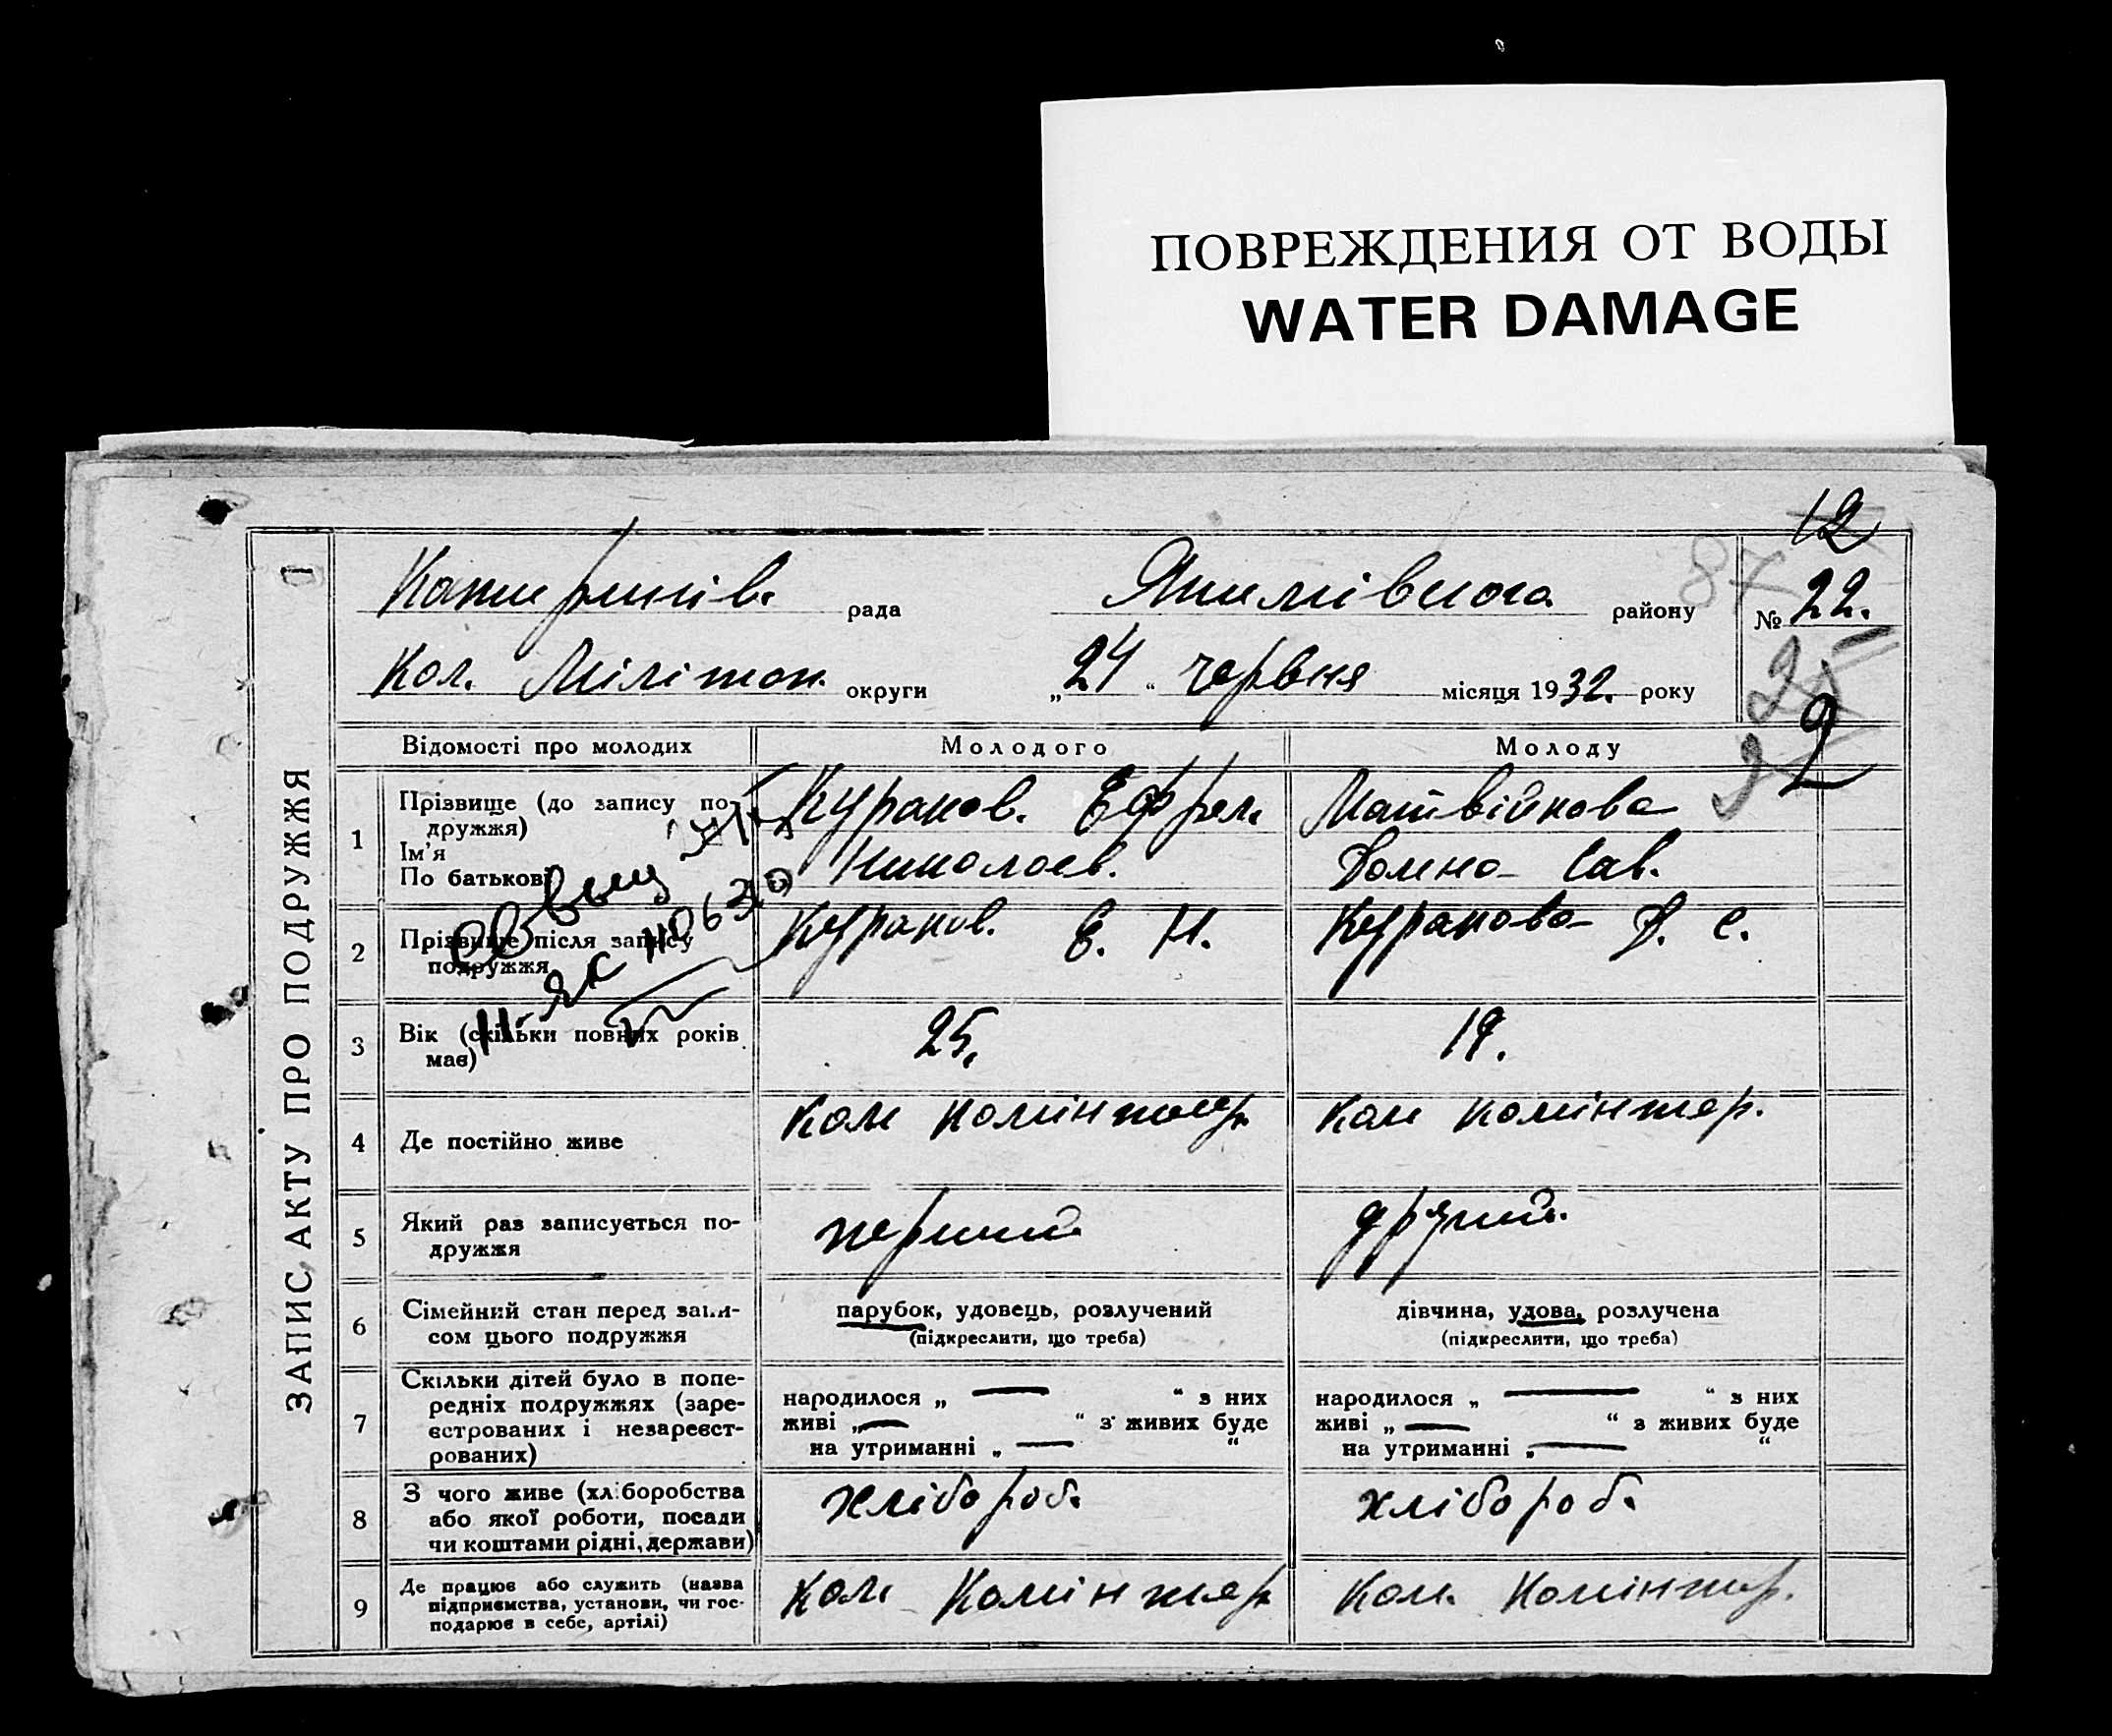 ПОВРЕЖДЕНИЯ ОТ ВОДЫ
WATER DAMAGE
12
ЗАПИС АКТУ ПРО ПОДРУЖЖЯ
Катеринів. рада Якимівського району 87 № 22.
Кол. Мелітоп. округи „24“ червня місяця 1932. року
25
Відомості про молодих Молодого Молоду
1 Прізвище (до запису подружжя) Кураков. Ефрем. Матвійкова
Ім'я
По батькові Николаев. Домна Сав.
2 Прізвище після запису Кураков. Е. Н. Куракова Д. С.
подружжя
3 Вік (скільки повних років 25. 19.
має)
4 Де постійно живе Ком Комінтерн Ком Комінтер.
5 Який раз записується по- перший другий.
дружжя
6 Сімейний стан перед запи- парубок, удовець, розлучений дівчина, удова, розлучена
сом цього подружжя (підкреслити, що треба) (підкреслити, що треба)
7 Скільки дітей було в попе-
редніх подружжях (заре- народилося „ — “ з них народилося „ — “ з них
єстрованих і незареєст- живі „ — “ з живих буде живі „ — “ з живих буде
рованих) на утриманні „ — “ на утриманні „ — “
8 З чого живе (хліборобства хлібороб. хлібороб.
або якої роботи, посади
чи коштами рідні, держави)
9 Де працює або служить (назва Ком. Комінтер Ком. Комінтер.
підприємства, установи, чи гос-
подарює в себе, артілі)